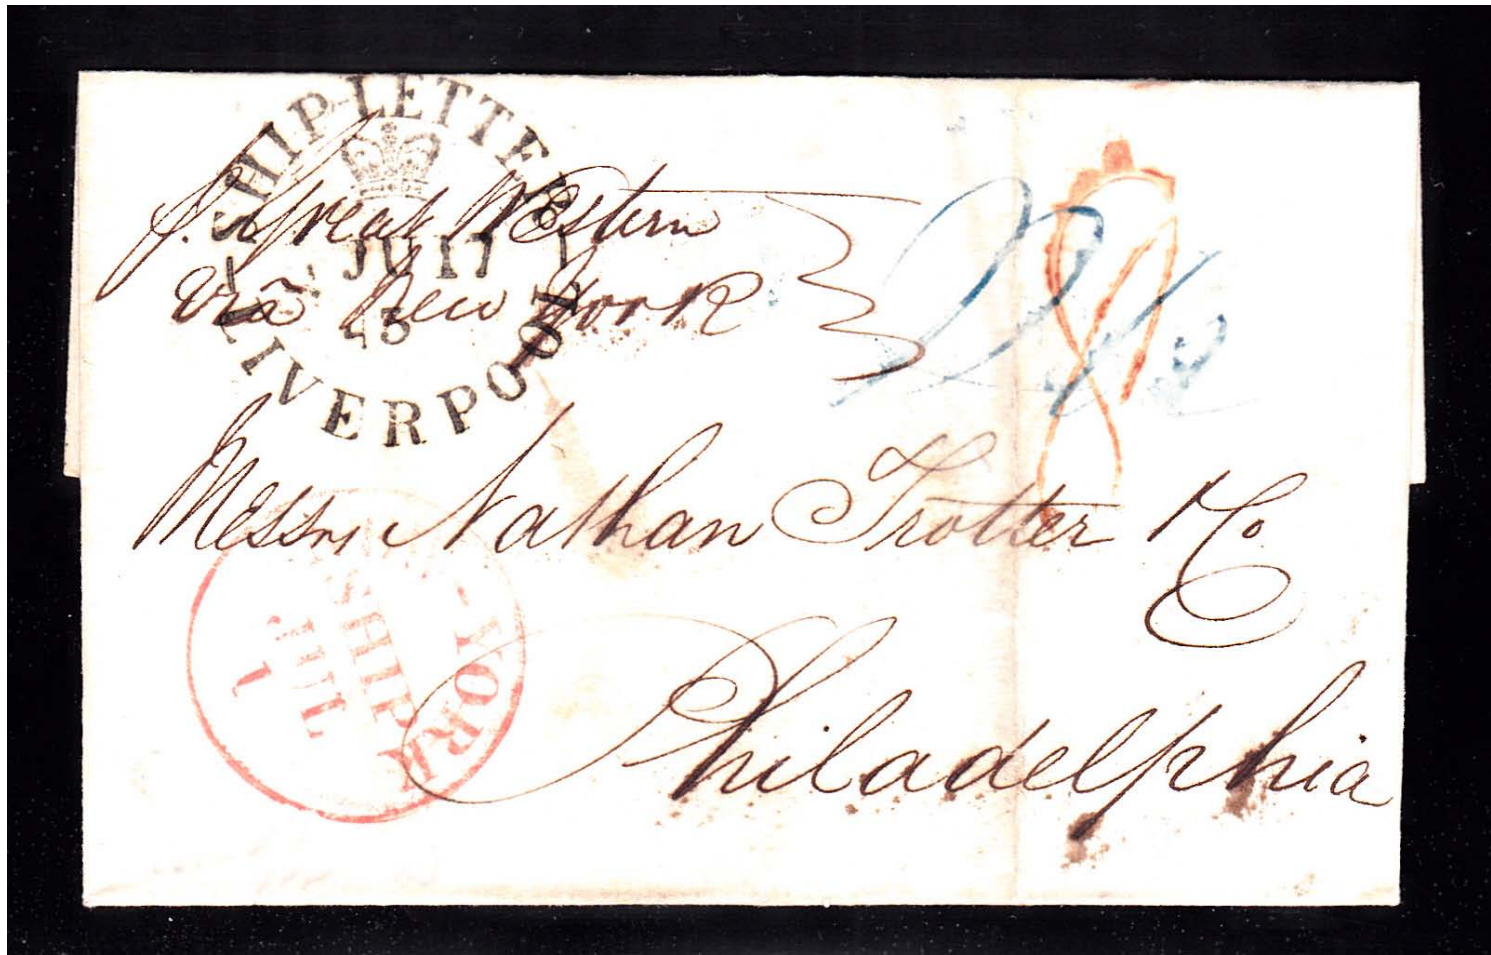 SHIP-LETTER
LIVERPOOL
JU 17
p. Great Western
via New York
Messrs Nathan Trotter & Co
Philadelphia
-YORK
SHIP
JUL
1